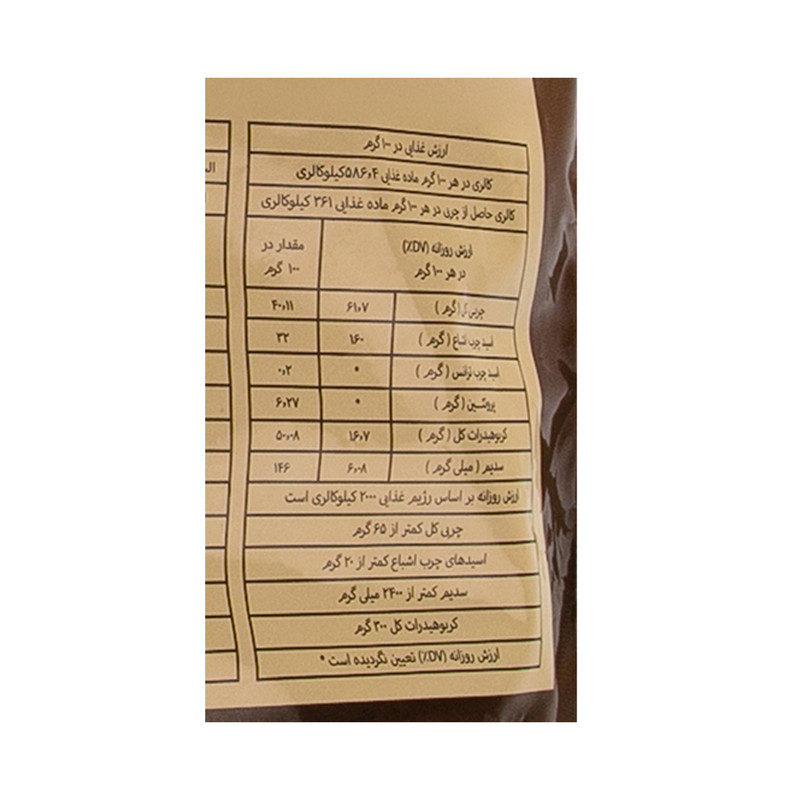 ارزش غذایی در ۱۰۰ گرم
کالری در هر ۱۰۰ گرم ماده غذایی ۵۸۶٫۴ کیلوکالری
کالری حاصل از چربی در هر ۱۰۰ گرم ماده غذایی ۳۶۱ کیلوکالری
ارزش روزانه (DV٪) در هر ۱۰۰ گرم
مقدار در ۱۰۰ گرم
چربی کل (گرم) ۶۱٫۷ ۴۰٫۱۱
اسید چرب اشباع (گرم) ۱۶۰ ۳۲
اسید چرب ترانس (گرم) * ۰٫۲
پروتئین (گرم) * ۶٫۲۷
کربوهیدرات کل (گرم) ۱۶٫۷ ۵۰٫۰۸
سدیم (میلی گرم) ۶٫۰۸ ۱۴۶
ارزش روزانه بر اساس رژیم غذایی ۲۰۰۰ کیلوکالری است
چربی کل کمتر از ۶۵ گرم
اسیدهای چرب اشباع کمتر از ۲۰ گرم
سدیم کمتر از ۲۴۰۰ میلی گرم
کربوهیدرات کل ۳۰۰ گرم
ارزش روزانه (DV٪) تعیین نگردیده است *